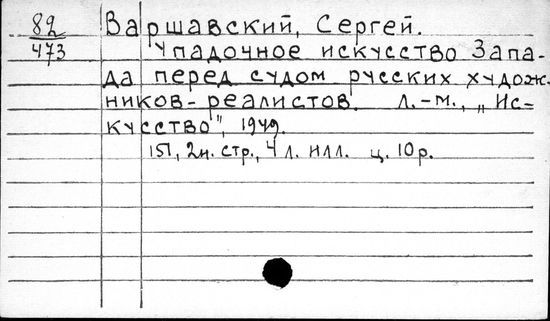 82 Варшавский, Сергей.
473 Упадочное искусство Запа-
да перед судом русских худож-
ников-реалистов. Л.-М., „Ис-
кусство", 1949.
151, 2н. стр., 4 л. илл. ц. 10 р.